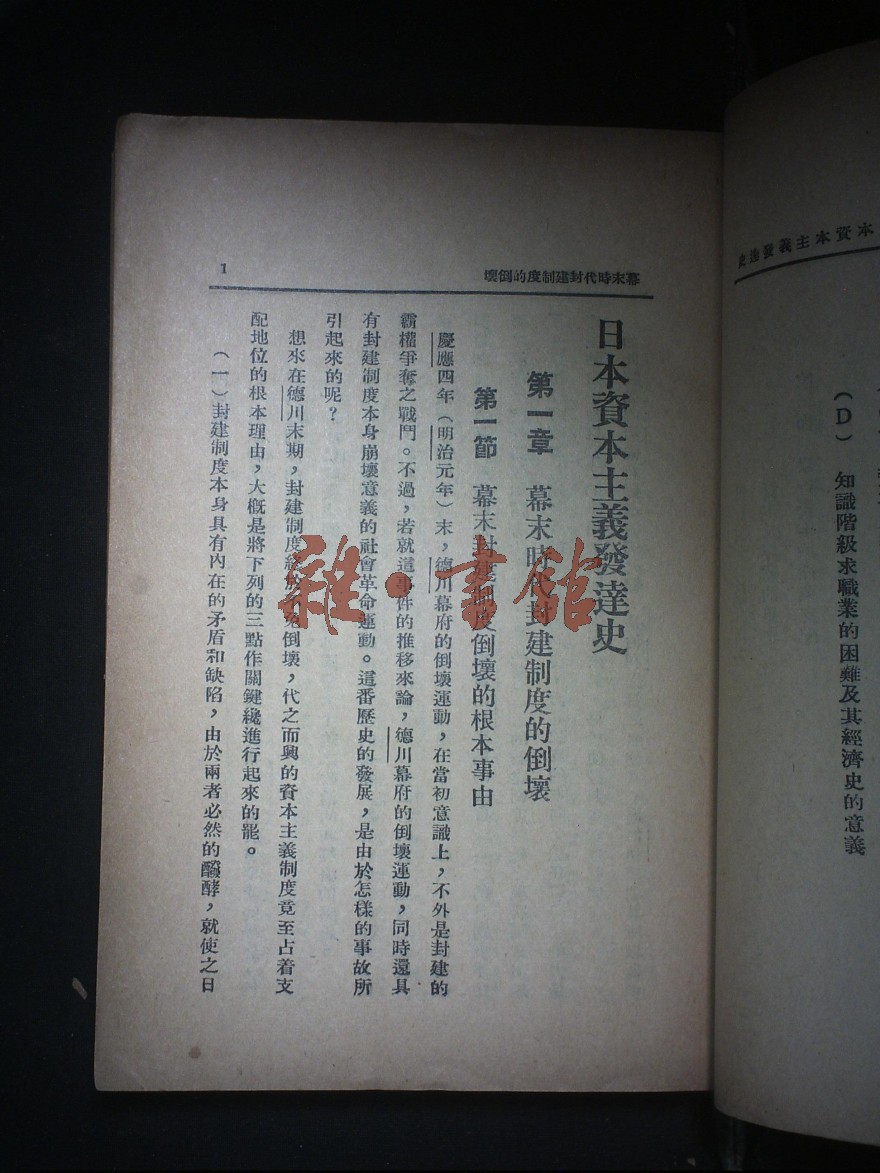 本資本主義發達史
(D) 知識階級求職業的困難及其經濟史的意義
幕末時代封建制度的倒壞
1
日本資本主義發達史
第一章 幕末時代封建制度的倒壞
第一節 幕末封建制度倒壞的根本事由
慶應四年(明治元年)末，德川幕府的倒壞運動，在當初意識上，不外是封建的
霸權爭奪之戰鬥。不過，若就這事件的推移來論，德川幕府的倒壞運動，同時還具
有封建制度本身崩壞意義的社會革命運動。這番歷史的發展，是由於怎樣的事故所
引起來的呢？
想來在德川末期，封建制度終於不免倒壞，代之而興的資本主義制度竟至占着支
配地位的根本理由，大概是將下列的三點作關鍵纔進行起來的罷。
(一)封建制度本身具有內在的矛盾和缺陷，由於兩者必然的醱酵，就使之日
雜·書館